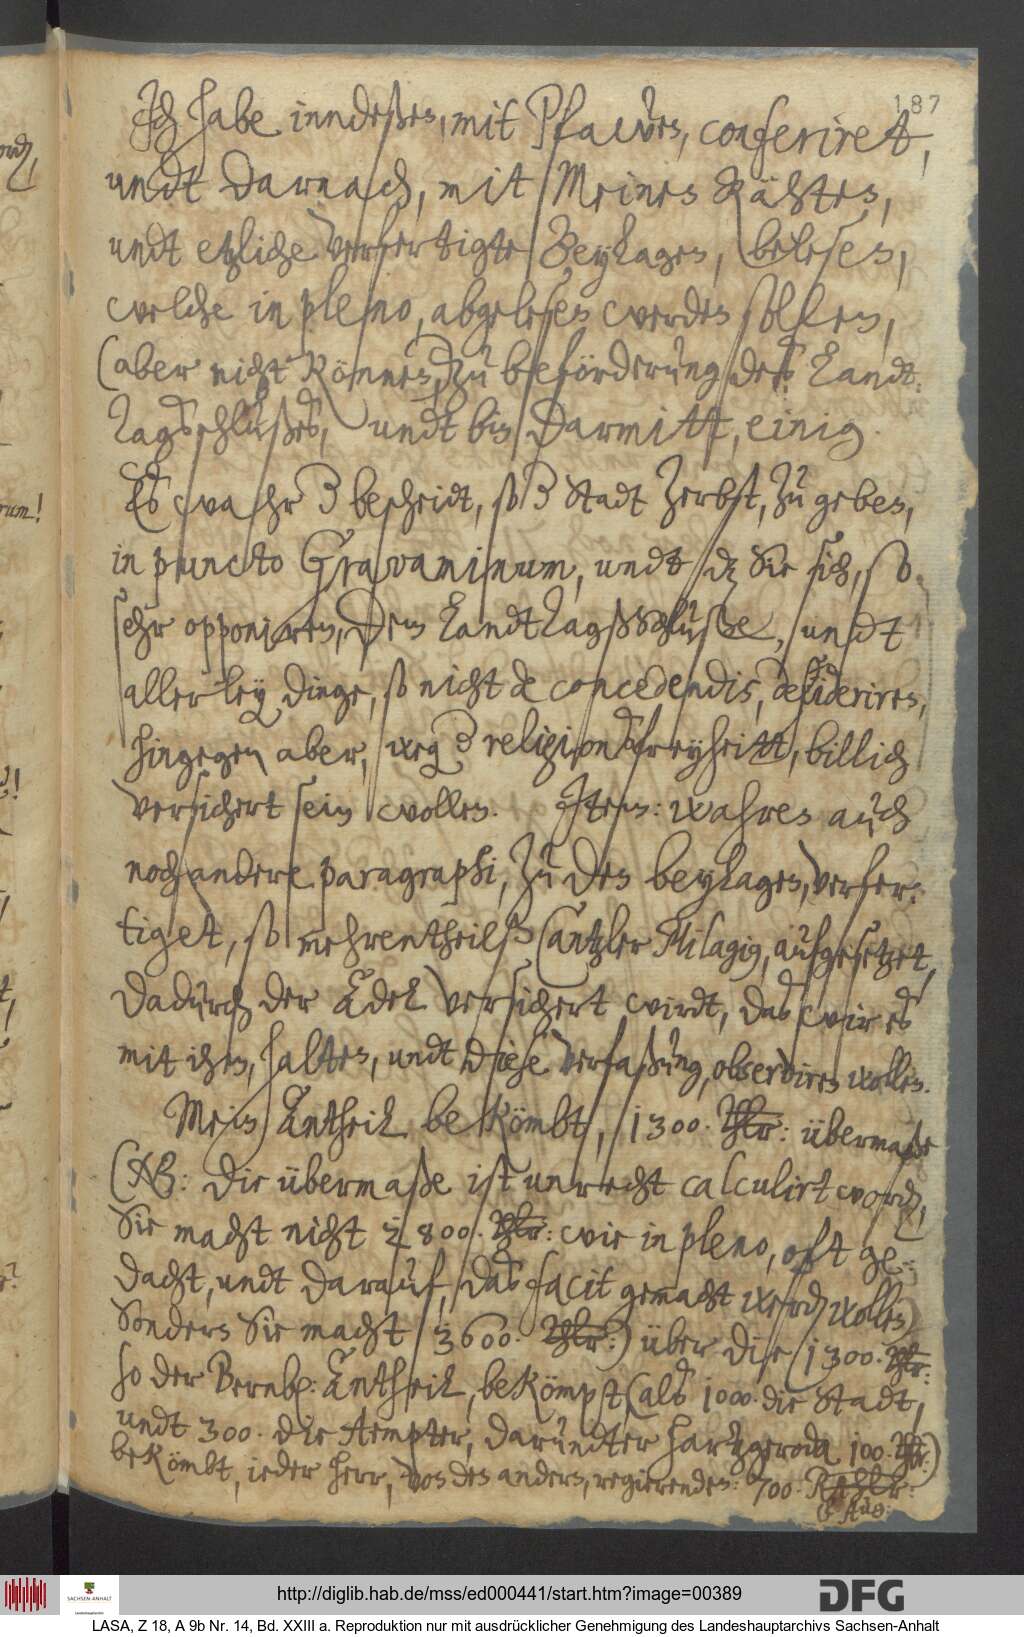 187
Ich habe inndeßen, mit Pfawen, conferiret,
undt darnach, mit Meinen Rähten,
undt etzliche verfertigte Beylagen, belesen,
welche in pleno, abgelesen werden sollen,
(aber nicht können) zu beförderung des Landt¬
Tagsschlußes, undt bin darmitt, einig.
Es wahr der bescheidt, so der Stadt Zerbst, zu geben,
in puncto Gravaminum, undt daß Sie sich, so
sehr opponiren, dem LandtTagsSchluße, undt
allerley dinge, so nicht de concedendis, desideriren,
hingegen aber, weg der religionsfreyheitt, billich
versichert sein wollen. Item: wahren auch
noch andere paragraphi, zu den beylagen, verfer¬
tiget, so mehrentheilß Cantzler Milagius, aufgesetzet,
dadurch der Adel versichert wirdt, das wir es
mit ihm, halten, undt diese verfaßung, observiren wollen.
Mein Antheil bekömbt, 1300. Thlr: übermaße
(NB: die übermaße ist unrecht calculirt word,
Sie macht nicht 2800. Thlr: wie in pleno, oft ge¬
dacht, undt darauf, das facit gemacht werd wollen)
Sondern Sie macht 3600. Thlr:) über die 1300. Thlr:
so der Bernb: Antheil, bekömpst, (als 1000. die Stadt,
undt 300. die Aempter, darundter Hartzgeroda 100. Thlr:)
bekömbt, ieder herr, von den andern, regierenden: 700. Rthlr:
http://diglib.hab.de/mss/ed000441/start.htm?image=00389
DFG
SACHSEN-ANHALT
LASA, Z 18, A 9b Nr. 14, Bd. XXIII a. Reproduktion nur mit ausdrücklicher Genehmigung des Landeshauptarchivs Sachsen-Anhalt